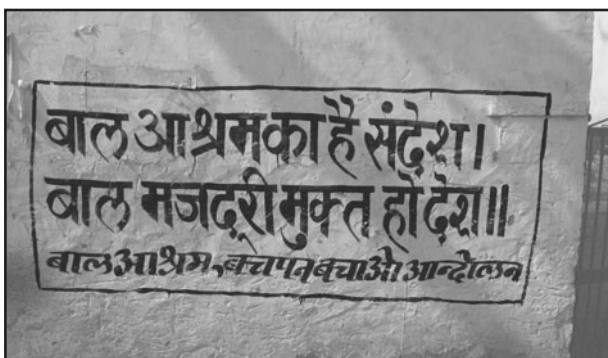 बाल आश्रम का है संदेश।
बाल मजदूरी मुक्त हो देश॥
बाल आश्रम, बचपन बचाओ आन्दोलन